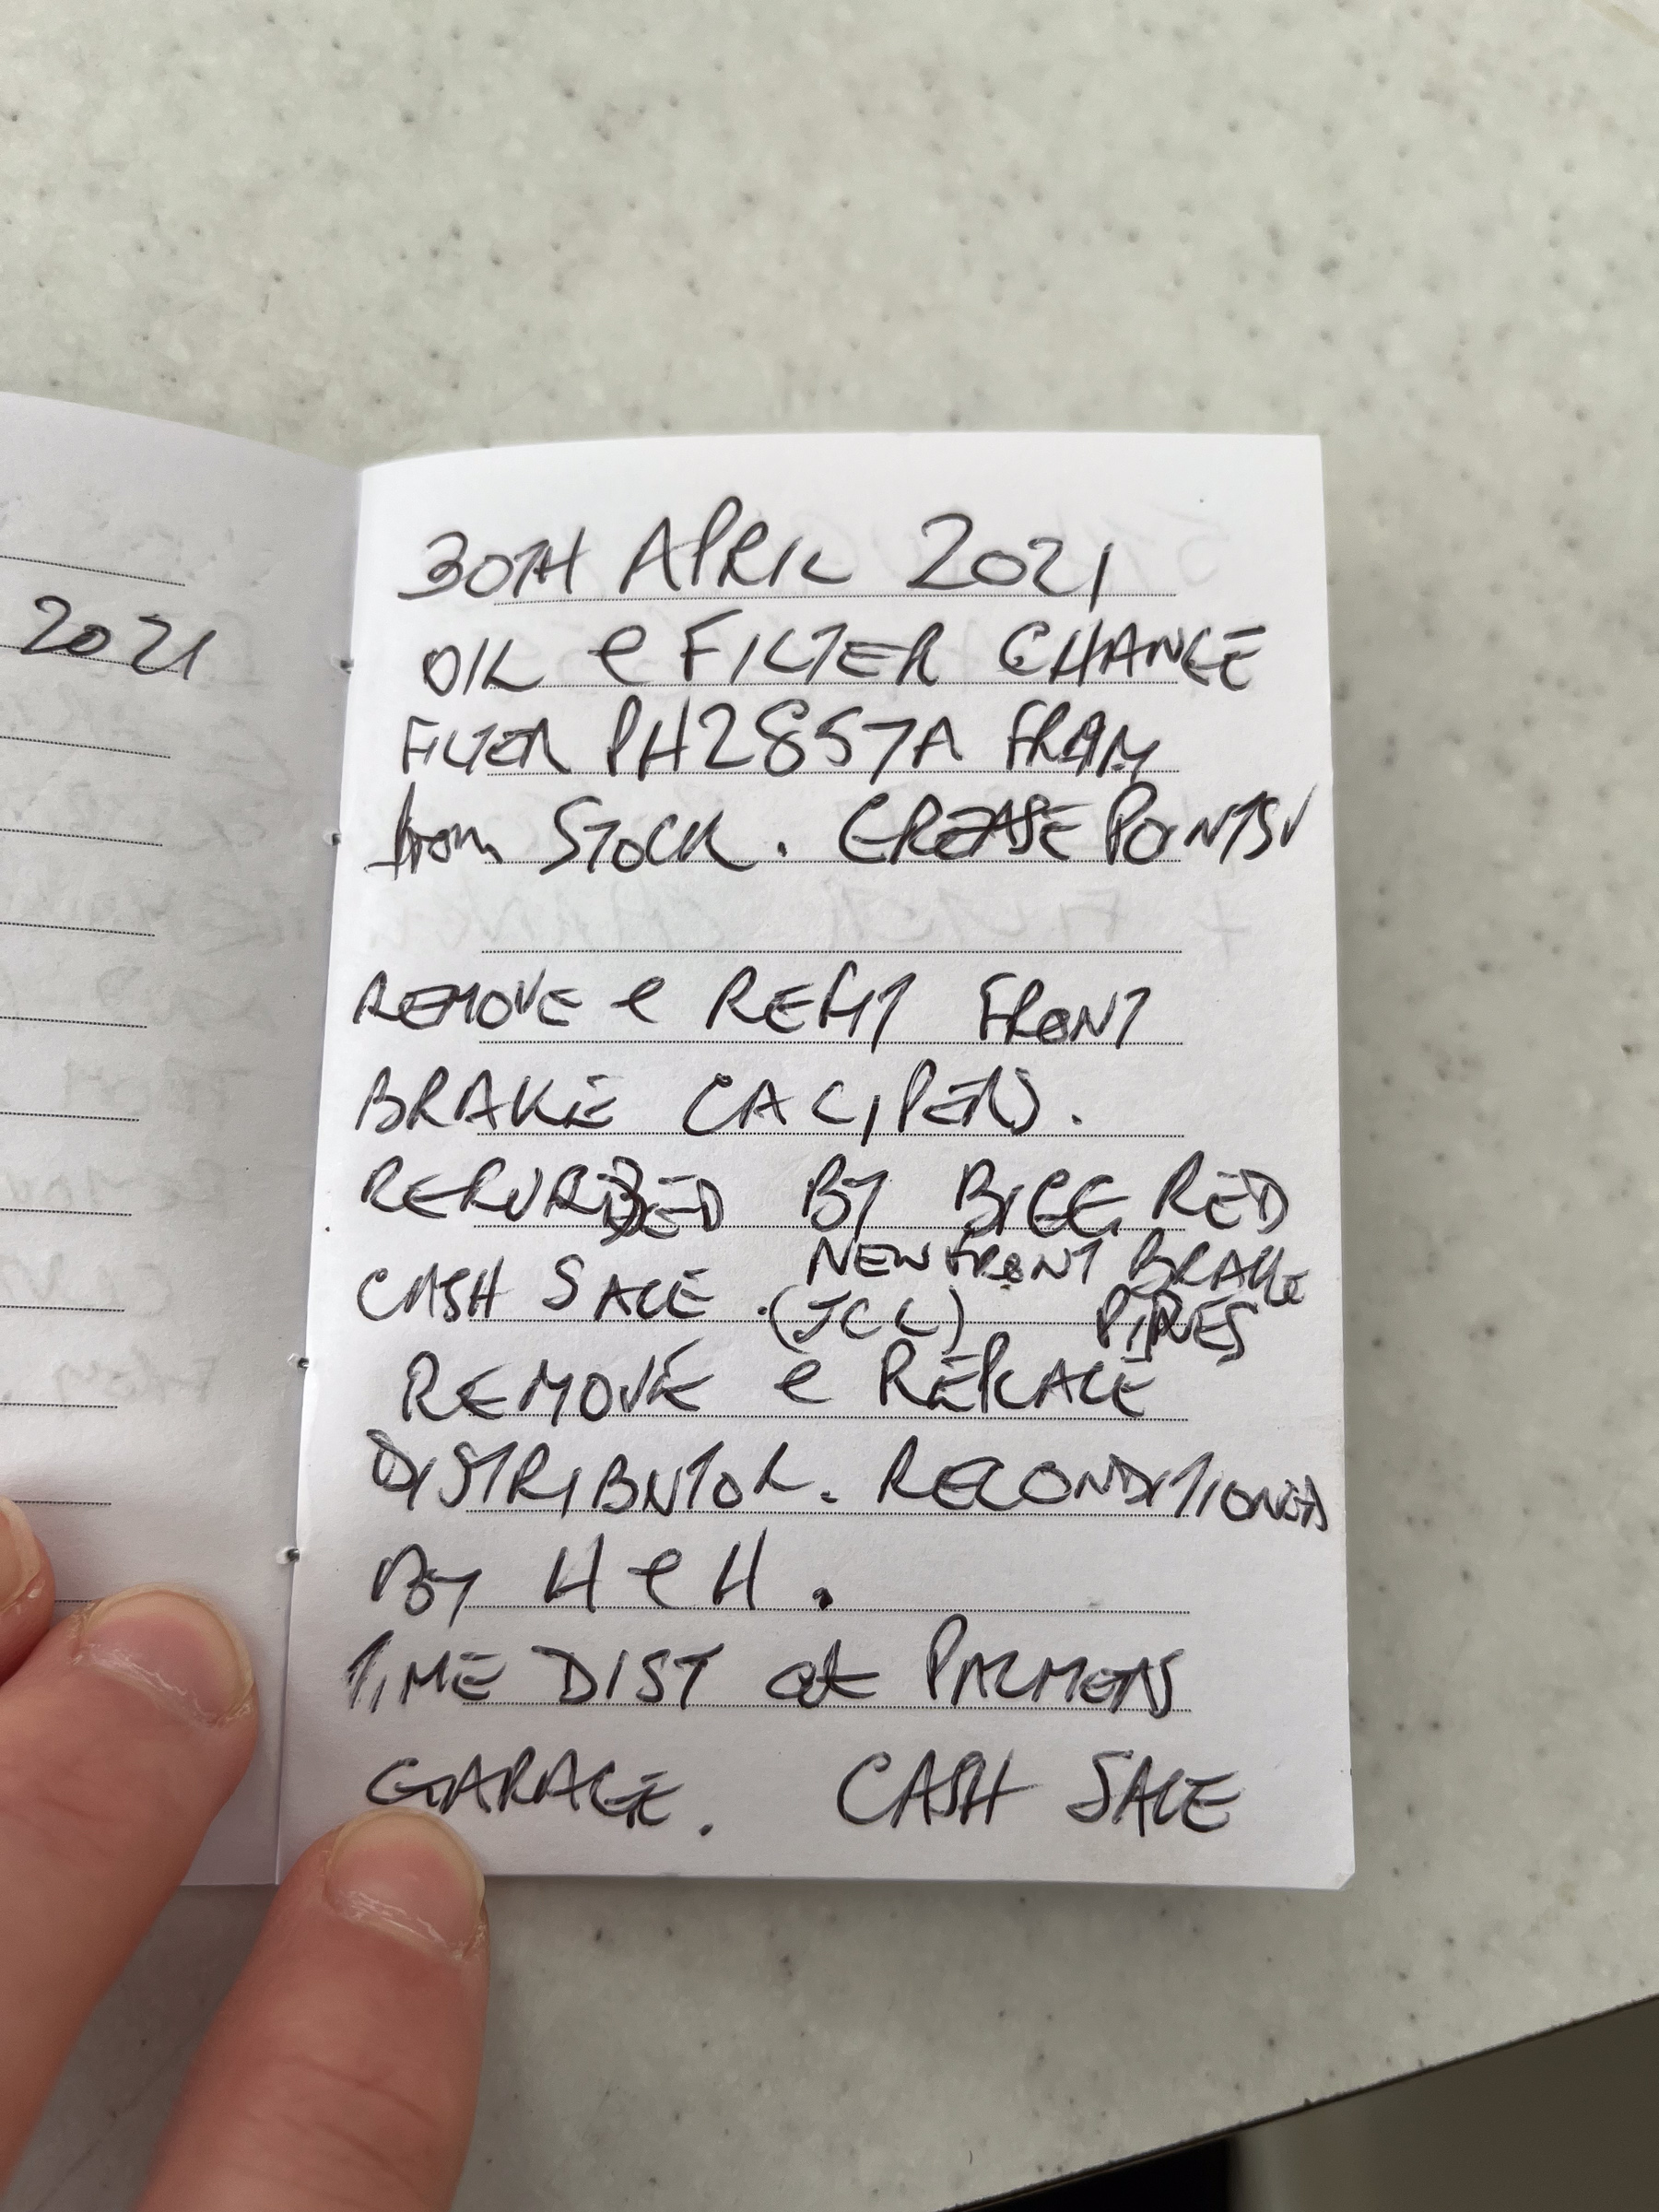 2021
30TH APRIL 2021
OIL & FILTER CHANGE
FILTER PH2857A FRAM
from STOCK. GREASE POINTS✓
REMOVE & REFIT FRONT
BRAKE CALIPERS.
REFURBED BY BIGG RED
NEW FRONT BRAKE
CASH SALE. (JCL) PIPES
REMOVE & REPLACE
DISTRIBUTOR. RECONDITIONED
By H & H.
TIME DIST at PALMERS
GARAGE. CASH SALE